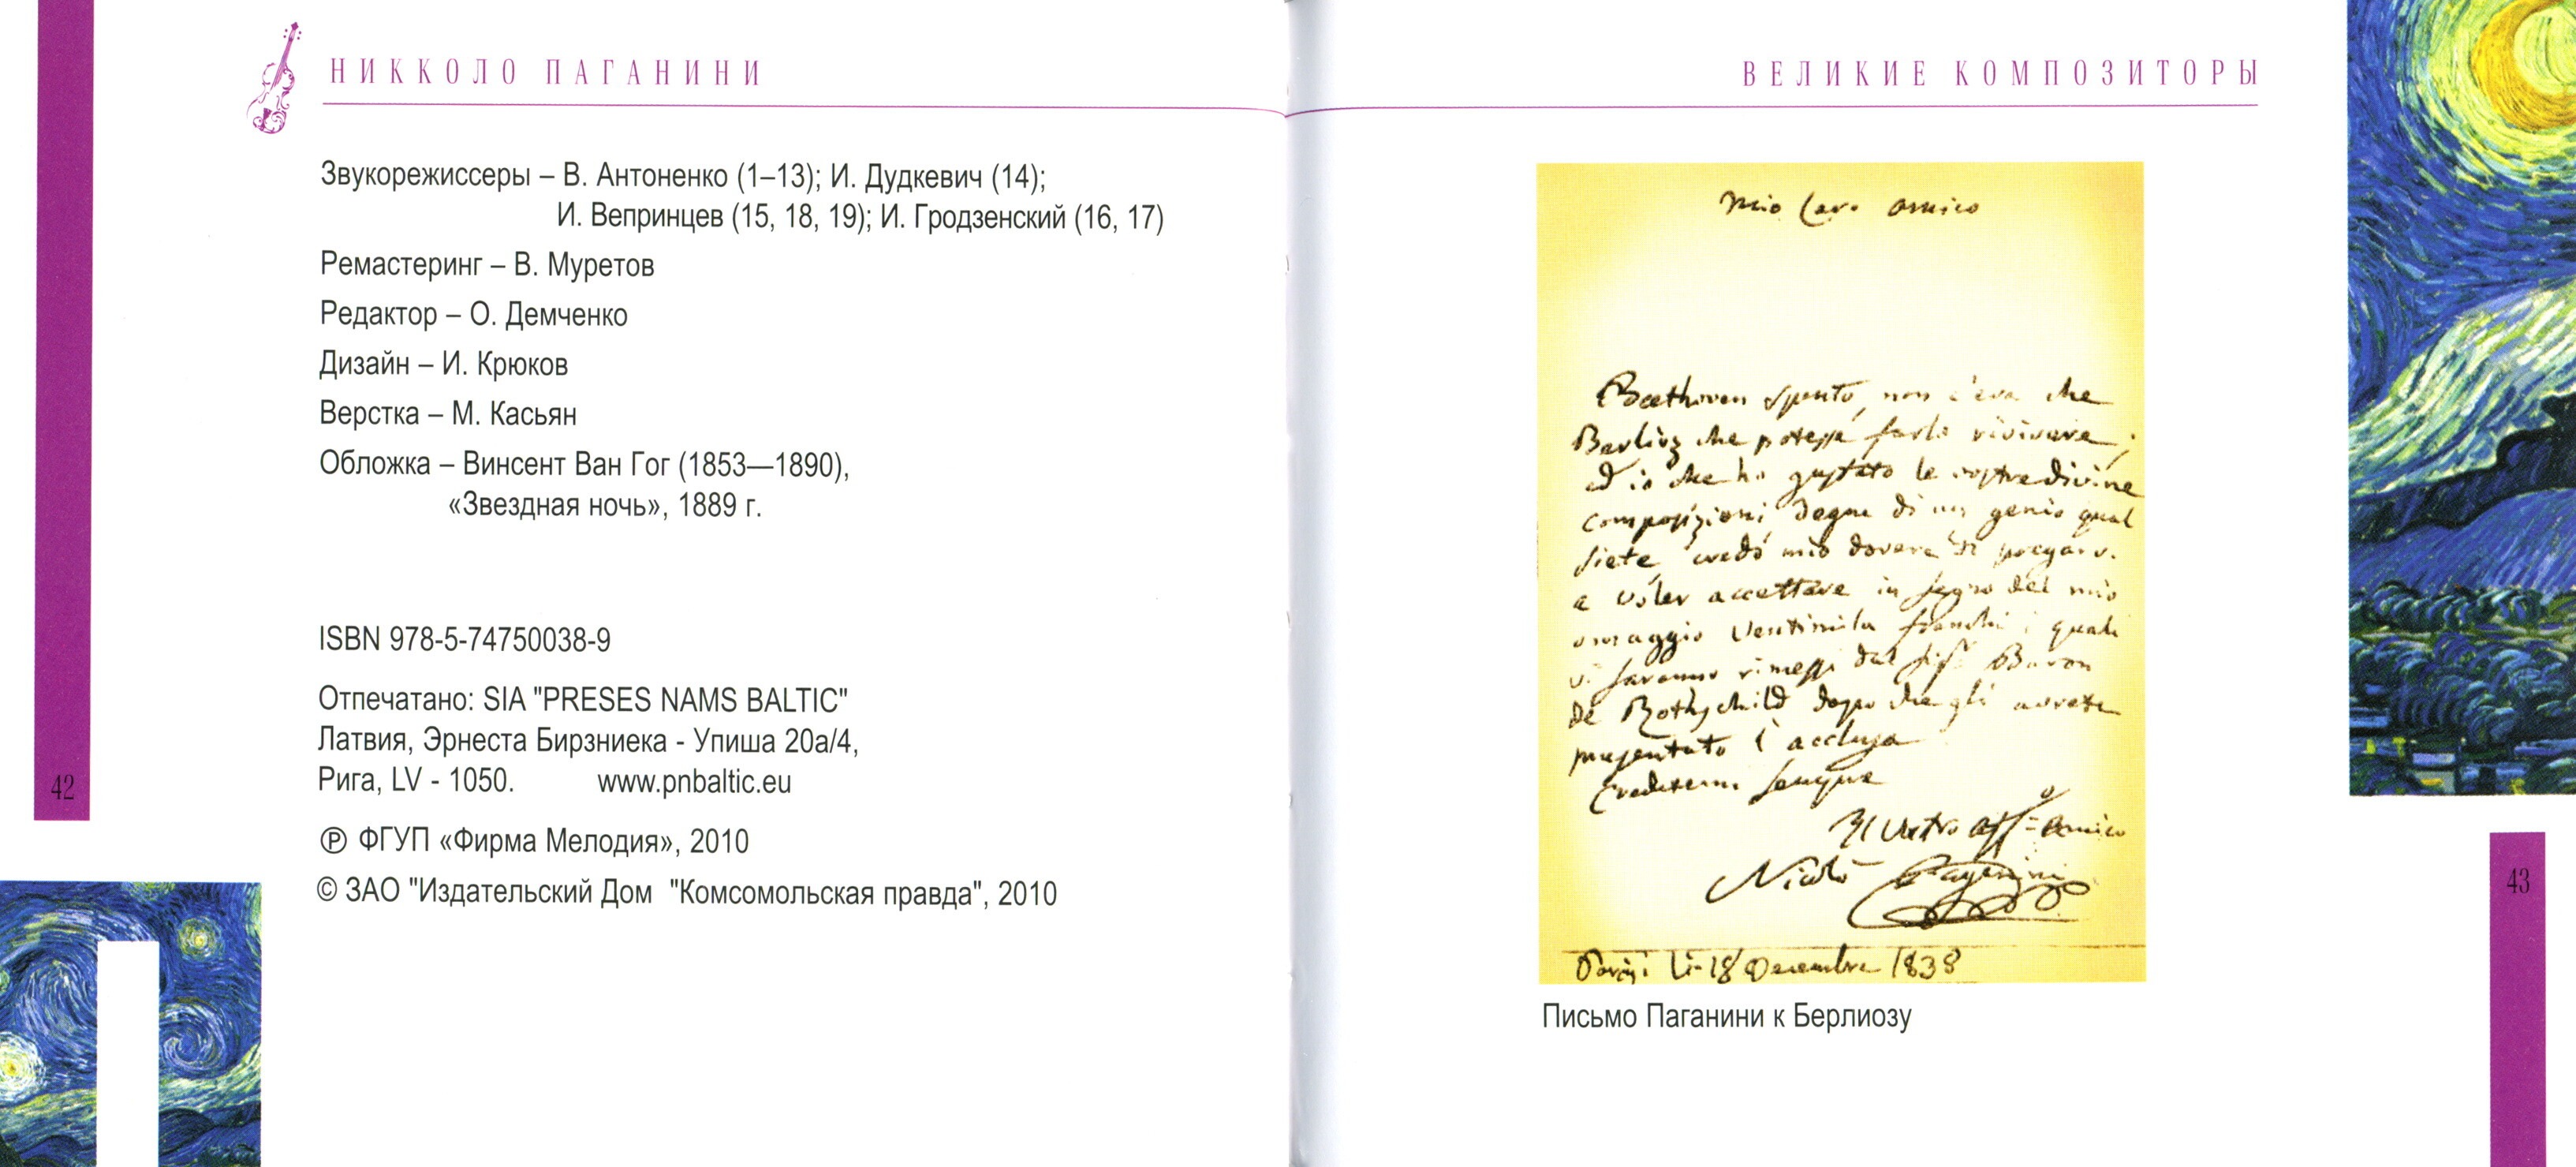 НИККОЛО ПАГАНИНИ
Звукорежиссеры – В. Антоненко (1–13); И. Дудкевич (14);
И. Вепринцев (15, 18, 19); И. Гродзенский (16, 17)
Ремастеринг – В. Муретов
Редактор – О. Демченко
Дизайн – И. Крюков
Верстка – М. Касьян
Обложка – Винсент Ван Гог (1853—1890),
«Звездная ночь», 1889 г.
ISBN 978-5-74750038-9
Отпечатано: SIA "PRESES NAMS BALTIC"
Латвия, Эрнеста Бирзниека - Упиша 20а/4,
Рига, LV - 1050. www.pnbaltic.eu
℗ ФГУП «Фирма Мелодия», 2010
© ЗАО "Издательский Дом "Комсомольская правда", 2010
42
ВЕЛИКИЕ КОМПОЗИТОРЫ
Mio Caro amico
Beethoven spento, non c'era che
Berlioz che potesse farlo rivivere;
ed io che ho gustato le vostre divine
composizioni degne di un genio qual
siete credo mio dovere di pregarvi
a voler accettare in segno del mio
omaggio ventimila franchi i quali
vi saranno rimessi dal Sigr Baron
De Rothschild dopo che gli avrete
presentato l'acclusa
Credetemi sempre
Il vostro affmo amico
Nicolò Paganini
Parigi li 18 Decembre 1838
Письмо Паганини к Берлиозу
43